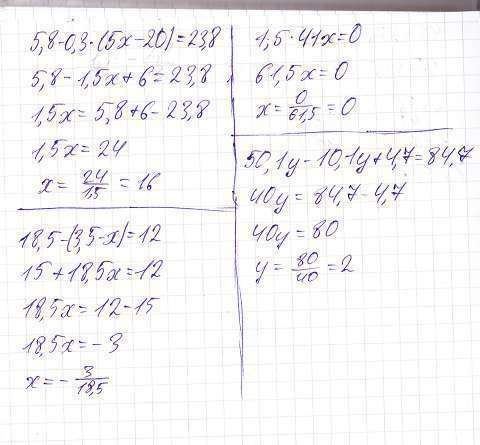 5,8-0,3·(5x-20)=23,8
5,8-1,5x+6=23,8
1,5x=5,8+6-23,8
1,5x=24
x=24/1,5=16
18,5-(3,5-x)=12
15+18,5x=12
18,5x=12-15
18,5x=-3
x=-3/18,5
1,5·41x=0
61,5x=0
x=0/61,5=0
50,1y-10,1y+4,7=84,7
40y=84,7-4,7
40y=80
y=80/40=2